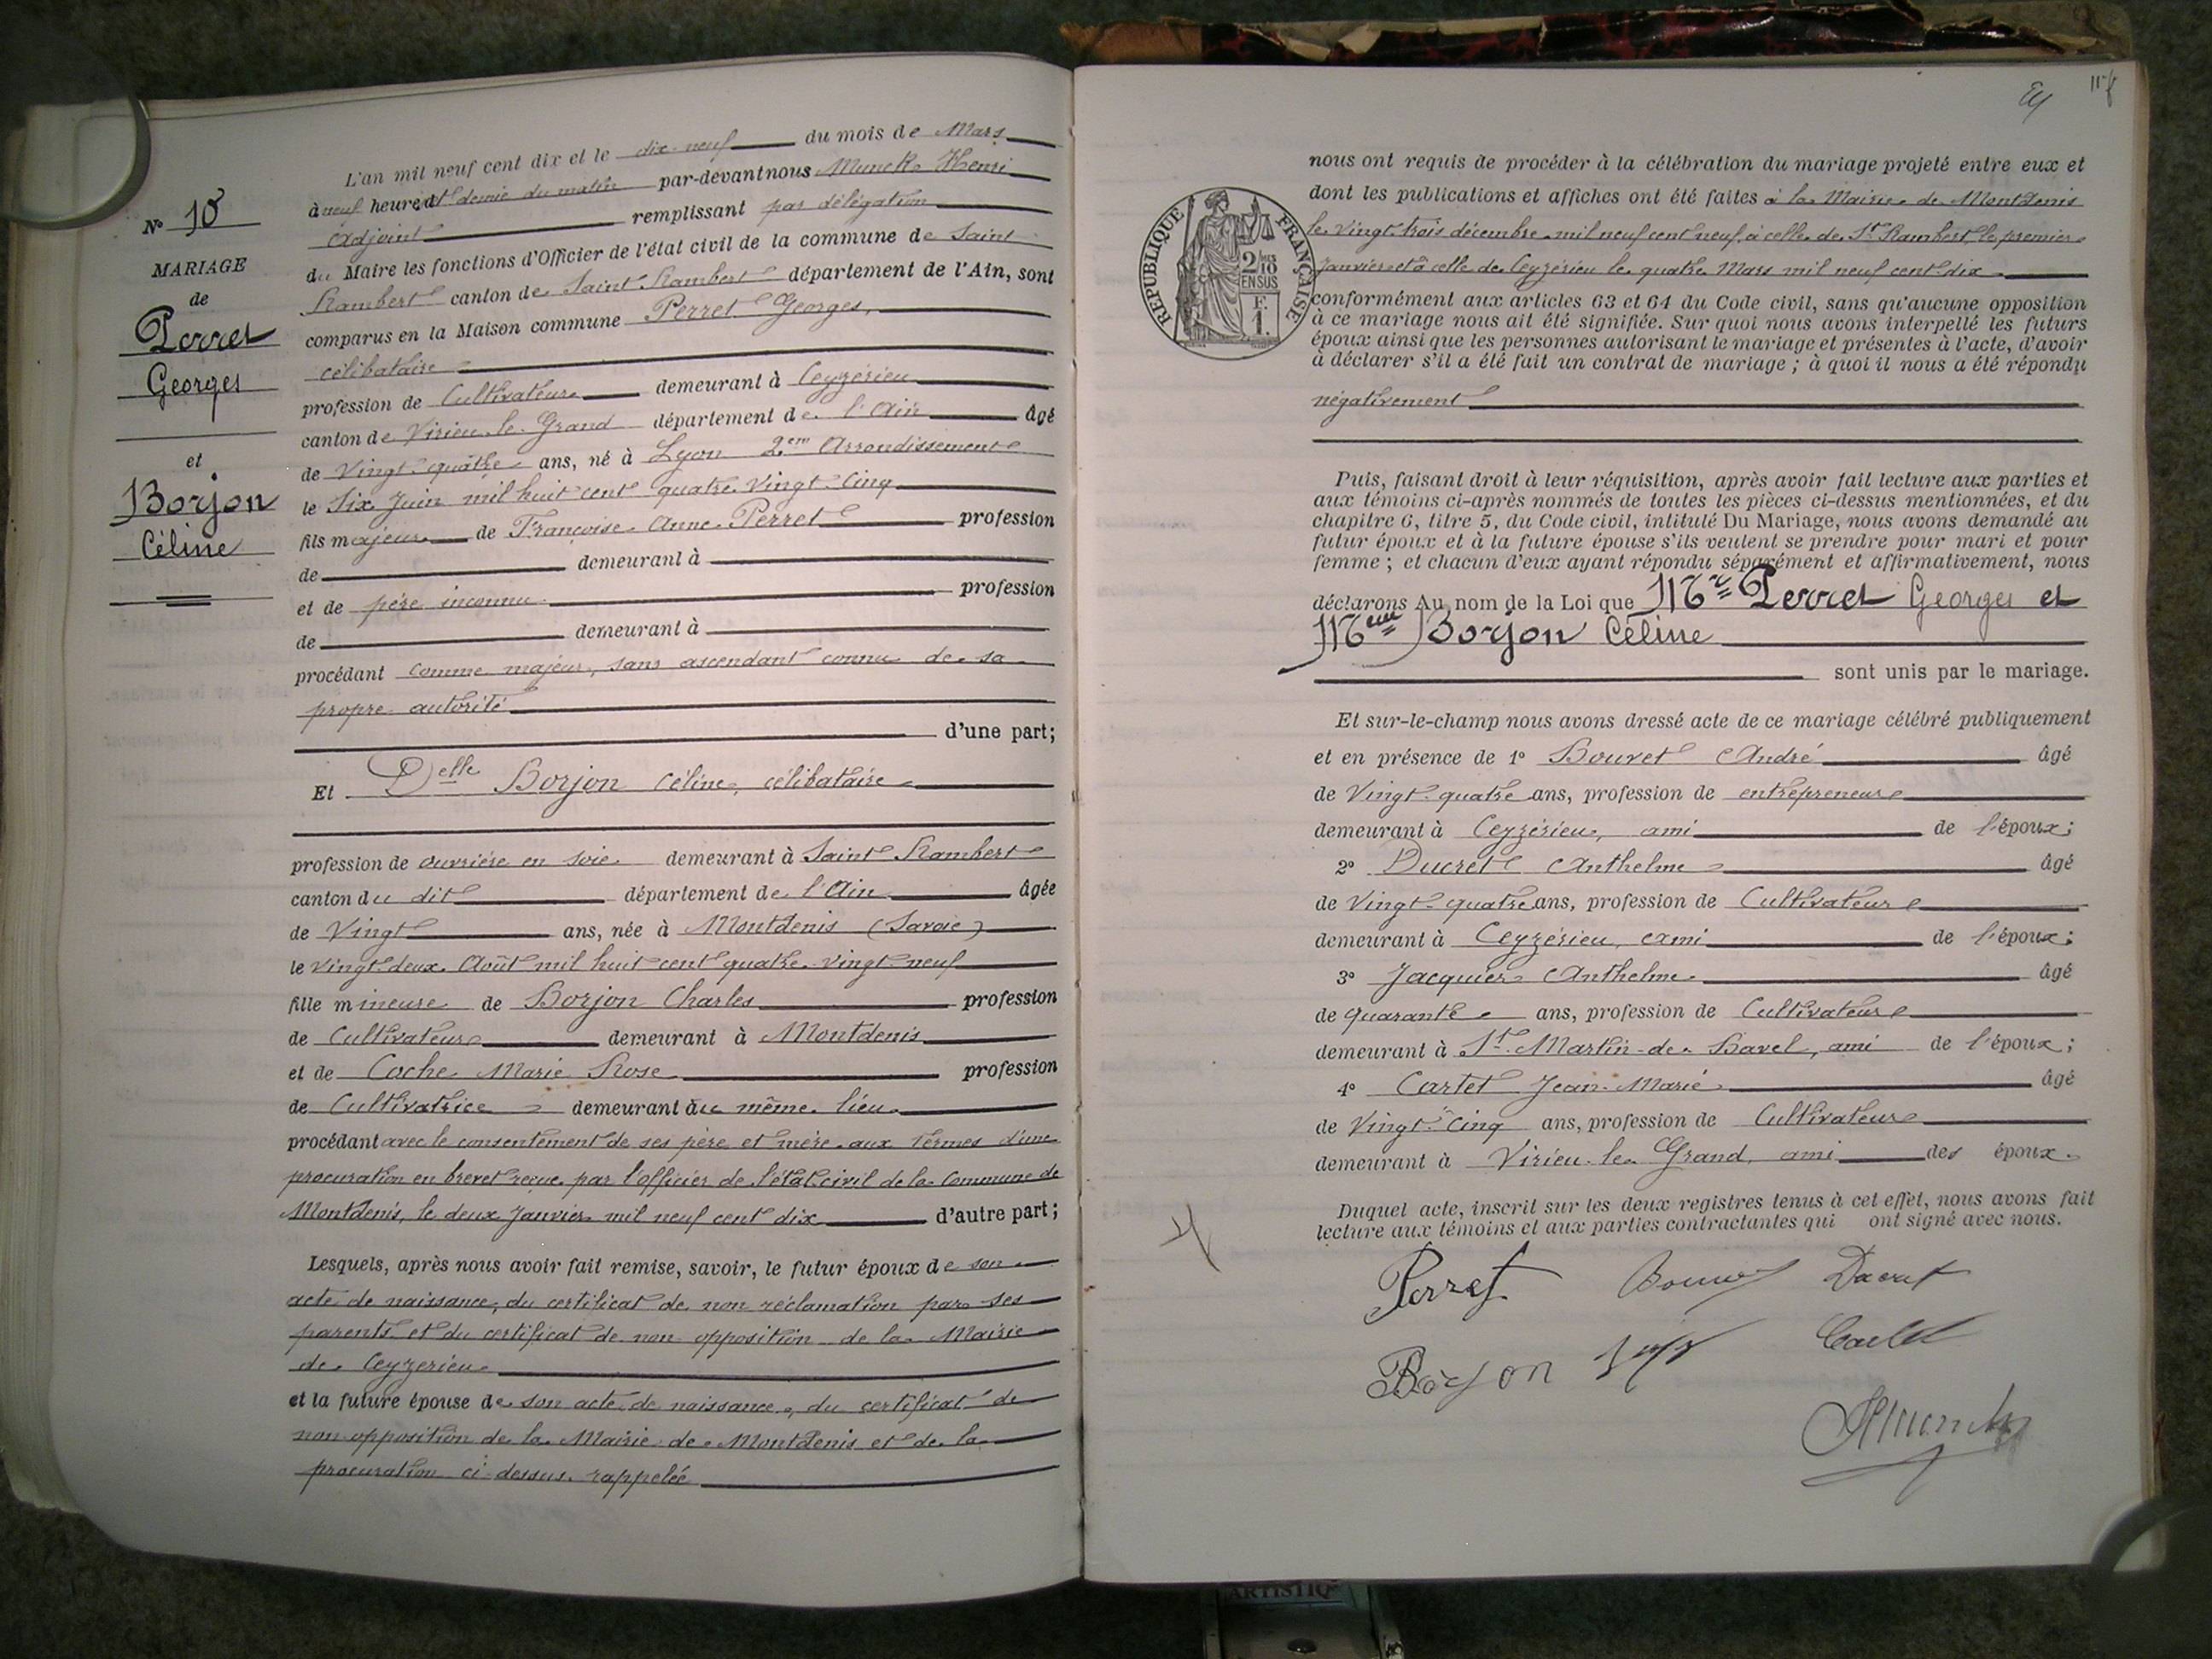 N° 10
MARIAGE
de
Perret
Georges
et
Borjon
Céline
L'an mil neuf cent dix et le dix-neuf du mois de Mars
à neuf heures et demie du matin par-devant nous Munck Henri
adjoint remplissant par délégation
du Maire les fonctions d'Officier de l'état civil de la commune de Saint
Rambert canton de Saint Rambert département de l'Ain, sont
comparus en la Maison commune Perret Georges,
célibataire
profession de Cultivateur demeurant à Ceyzérieu
canton de Virieu-le-Grand département de l'Ain âgé
de Vingt-quatre ans, né à Lyon 2em Arrondissement
le Six Juin mil huit cent quatre-vingt-cinq
fils majeur de Françoise Anne Perret profession
de demeurant à
et de père inconnu profession
de demeurant à
procédant comme majeur, sans ascendant connu de sa
propre autorité
d'une part;
Et Delle Borjon Céline, célibataire
profession de ouvrière en soie demeurant à Saint Rambert
canton du dit département de l'Ain âgée
de Vingt ans, née à Montdenis (Savoie)
le vingt-deux Août mil huit cent quatre-vingt-neuf
fille mineure de Borjon Charles profession
de Cultivateur demeurant à Montdenis
et de Coche Marie Rose profession
de Cultivatrice demeurant au même lieu
procédant avec le consentement de ses père et mère aux termes d'une
procuration en brevet reçue par l'officier de l'état civil de la Commune de
Montdenis, le deux Janvier mil neuf cent dix d'autre part;
Lesquels, après nous avoir fait remise, savoir, le futur époux de son
acte de naissance, du certificat de non réclamation par ses
parents et du certificat de non opposition de la Mairie
de Ceyzerieu
et la future épouse de son acte de naissance, du certificat de
non opposition de la Mairie de Montdenis et de la
procuration ci-dessus rappelée
118
nous ont requis de procéder à la célébration du mariage projeté entre eux et
dont les publications et affiches ont été faites à la Mairie de Montdenis
le vingt-trois décembre mil neuf cent neuf, à celle de St Rambert le premier
Janvier et à celle de Ceyzérieu le quatre Mars mil neuf cent dix
RÉPUBLIQUE FRANÇAISE
2/10
EN SUS
F.
1.
conformément aux articles 63 et 64 du Code civil, sans qu'aucune opposition
à ce mariage nous ait été signifiée. Sur quoi nous avons interpellé les futurs
époux ainsi que les personnes autorisant le mariage et présentes à l'acte, d'avoir
à déclarer s'il a été fait un contrat de mariage ; à quoi il nous a été répondu
négativement
Puis, faisant droit à leur réquisition, après avoir fait lecture aux parties et
aux témoins ci-après nommés de toutes les pièces ci-dessus mentionnées, et du
chapitre 6, titre 5, du Code civil, intitulé Du Mariage, nous avons demandé au
futur époux et à la future épouse s'ils veulent se prendre pour mari et pour
femme ; et chacun d'eux ayant répondu séparément et affirmativement, nous
déclarons Au nom de la Loi que Mr Perret Georges et
Melle Borjon Céline
sont unis par le mariage.
Et sur-le-champ nous avons dressé acte de ce mariage célébré publiquement
et en présence de 1° Bouvet André âgé
de Vingt-quatre ans, profession de entrepreneur
demeurant à Ceyzérieu, ami de l'époux;
2° Ducret Anthelme âgé
de Vingt-quatre ans, profession de Cultivateur
demeurant à Ceyzérieu, ami de l'époux;
3° Jacquier Anthelme âgé
de quarante ans, profession de Cultivateur
demeurant à St Martin-de-Bavel, ami de l'époux;
4° Cartet Jean-Marie âgé
de Vingt-Cinq ans, profession de Cultivateur
demeurant à Virieu-le-Grand, ami des époux.
Duquel acte, inscrit sur les deux registres tenus à cet effet, nous avons fait
lecture aux témoins et aux parties contractantes qui ont signé avec nous.
Perret Bouvet Ducret
Borjon Cartet
HMunck
ARTISTIQ